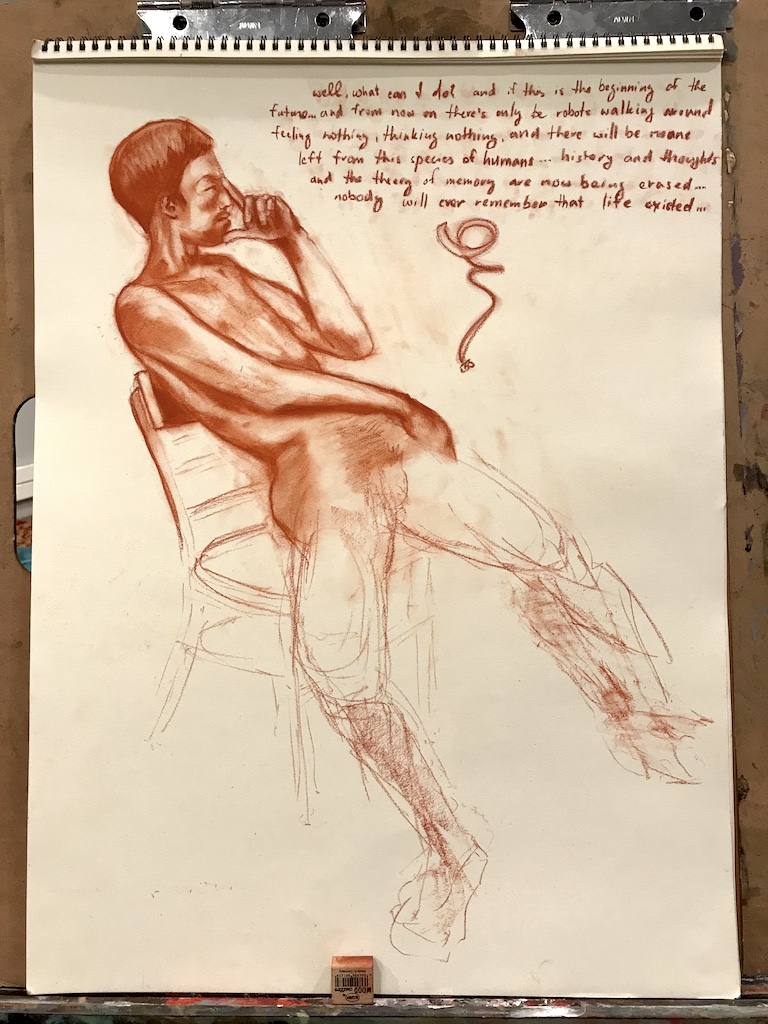 well, what can I do? and if this is the beginning of the
future... and from now on there's only be robots walking around
feeling nothing, thinking nothing, and there will be noone
left from this species of humans... history and thoughts
and the theory of memory are now being erased...
nobody will ever remember that life existed...